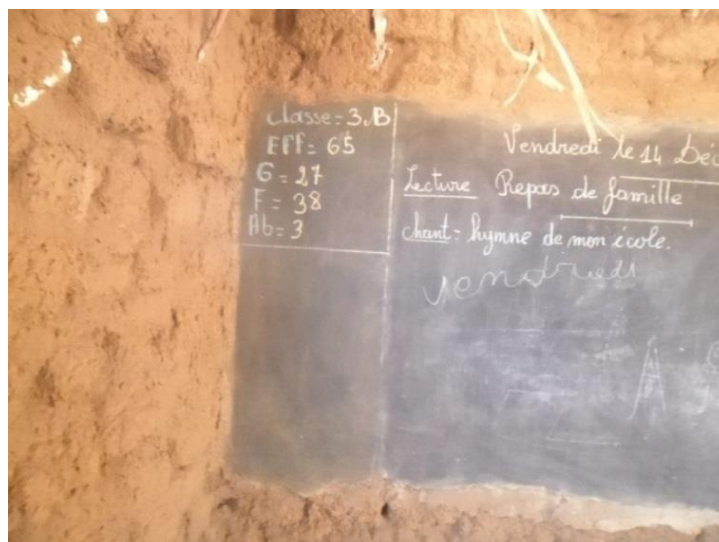 Classe = 3.B
Eff = 65
G = 27
F = 38
Ab = 3
Vendredi le 14 Déc
Lecture Repas de famille
chant = hymne de mon école.
vendredi
A